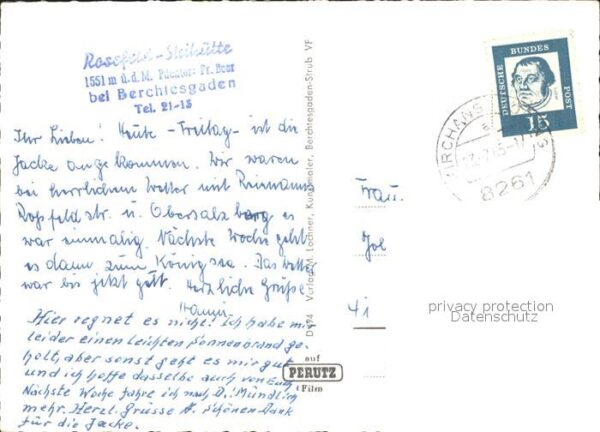 Rossfeld-Skihütte
1551 m ü.d.M. Pächter: Fr. Beer
bei Berchtesgaden
Tel. 21-15
Ihr Lieben! Heute - Freitag - ist die
Jacke angekommen. Wir waren
bei herrlichem Wetter mit
Roßfeldstr. u. Obersalzberg es
war einmalig. Nächste Woche geht
es dann zum Königsee. Das Wetter
war bis jetzt gut. Herzliche Grüße
Hier regnet es nicht! Ich habe mir
leider einen leichten Sonnenbrand ge-
holt, aber sonst geht es mir gut
und ich hoffe dasselbe auch von Euch
Nächste Woche fahre ich nach D. Mündlich
mehr. Herzl. Grüsse A. Schönen Dank
für die Jacke.
D 94 Verlag M. Lochner, Kunstmaler, Berchtesgaden-Strub VF
auf
PERUTZ
Film
DEUTSCHE BUNDESPOST
15
KIRCHANS
8261
Frau
41
privacy protection
Datenschutz